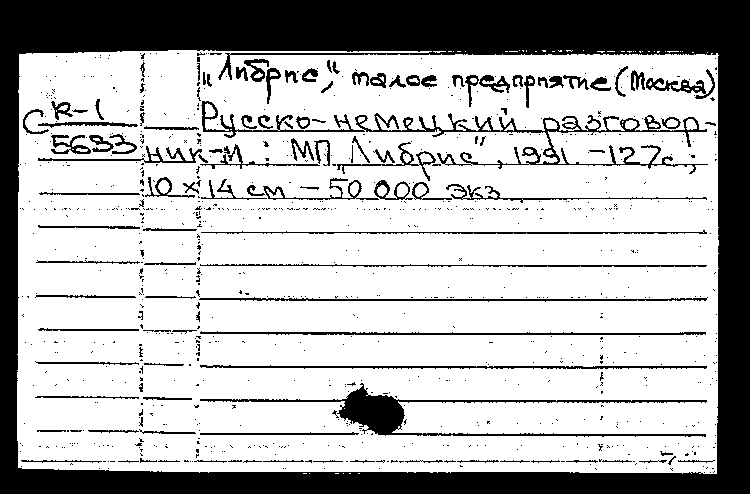 „Либрис," малое предприятие (Москва).
С К-1 Русско-немецкий разговор-
5633 ник.-М.: МП „Либрис", 1991. -127с;
10 × 14 см - 50 000 экз